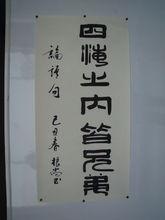 四海之內皆兄弟
論語句 己丑春